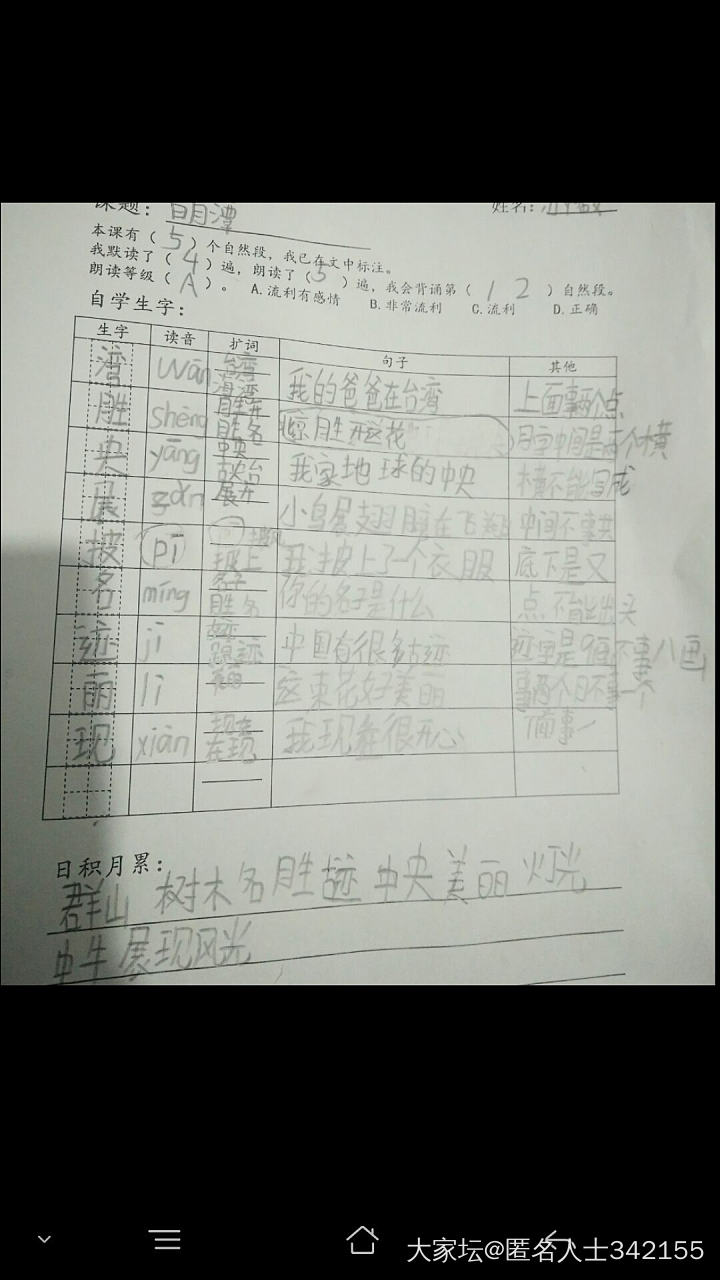 课题：日月潭 姓名：
本课有（ 5 ）个自然段，我已在文中标注。
我默读了（ 4 ）遍，朗读了（ 5 ）遍，我会背诵第（ 1 2 ）自然段。
朗读等级（ A ）。 A.流利有感情 B.非常流利 C.流利 D.正确
自学生字：
生字 读音 扩词 句子 其他
湾 wān 台湾 海湾 我的爸爸在台湾 上面事两个点
胜 shèng 胜名 月字中间是两个横
央 yāng 中央 我家地球的中央 横不能写成
展 zǎn 展开 小鸟展翅膀在飞翔 中间不事共
披 pī 披上 我披上了一个衣服 底下是又
名 míng 名子 胜名 你的名子是什么 点不能出头
迹 jī 足迹 中国有很多古迹 迹字是9画不事八画
丽 lì 这束花好美丽 事两个月不事一个
现 xiàn 现在 在现 我现在很开心 下面事一
日积月累：
群山 树木 名胜古迹 中央 美丽 灯光
中午 展现 风光
大家坛@匿名人士342155